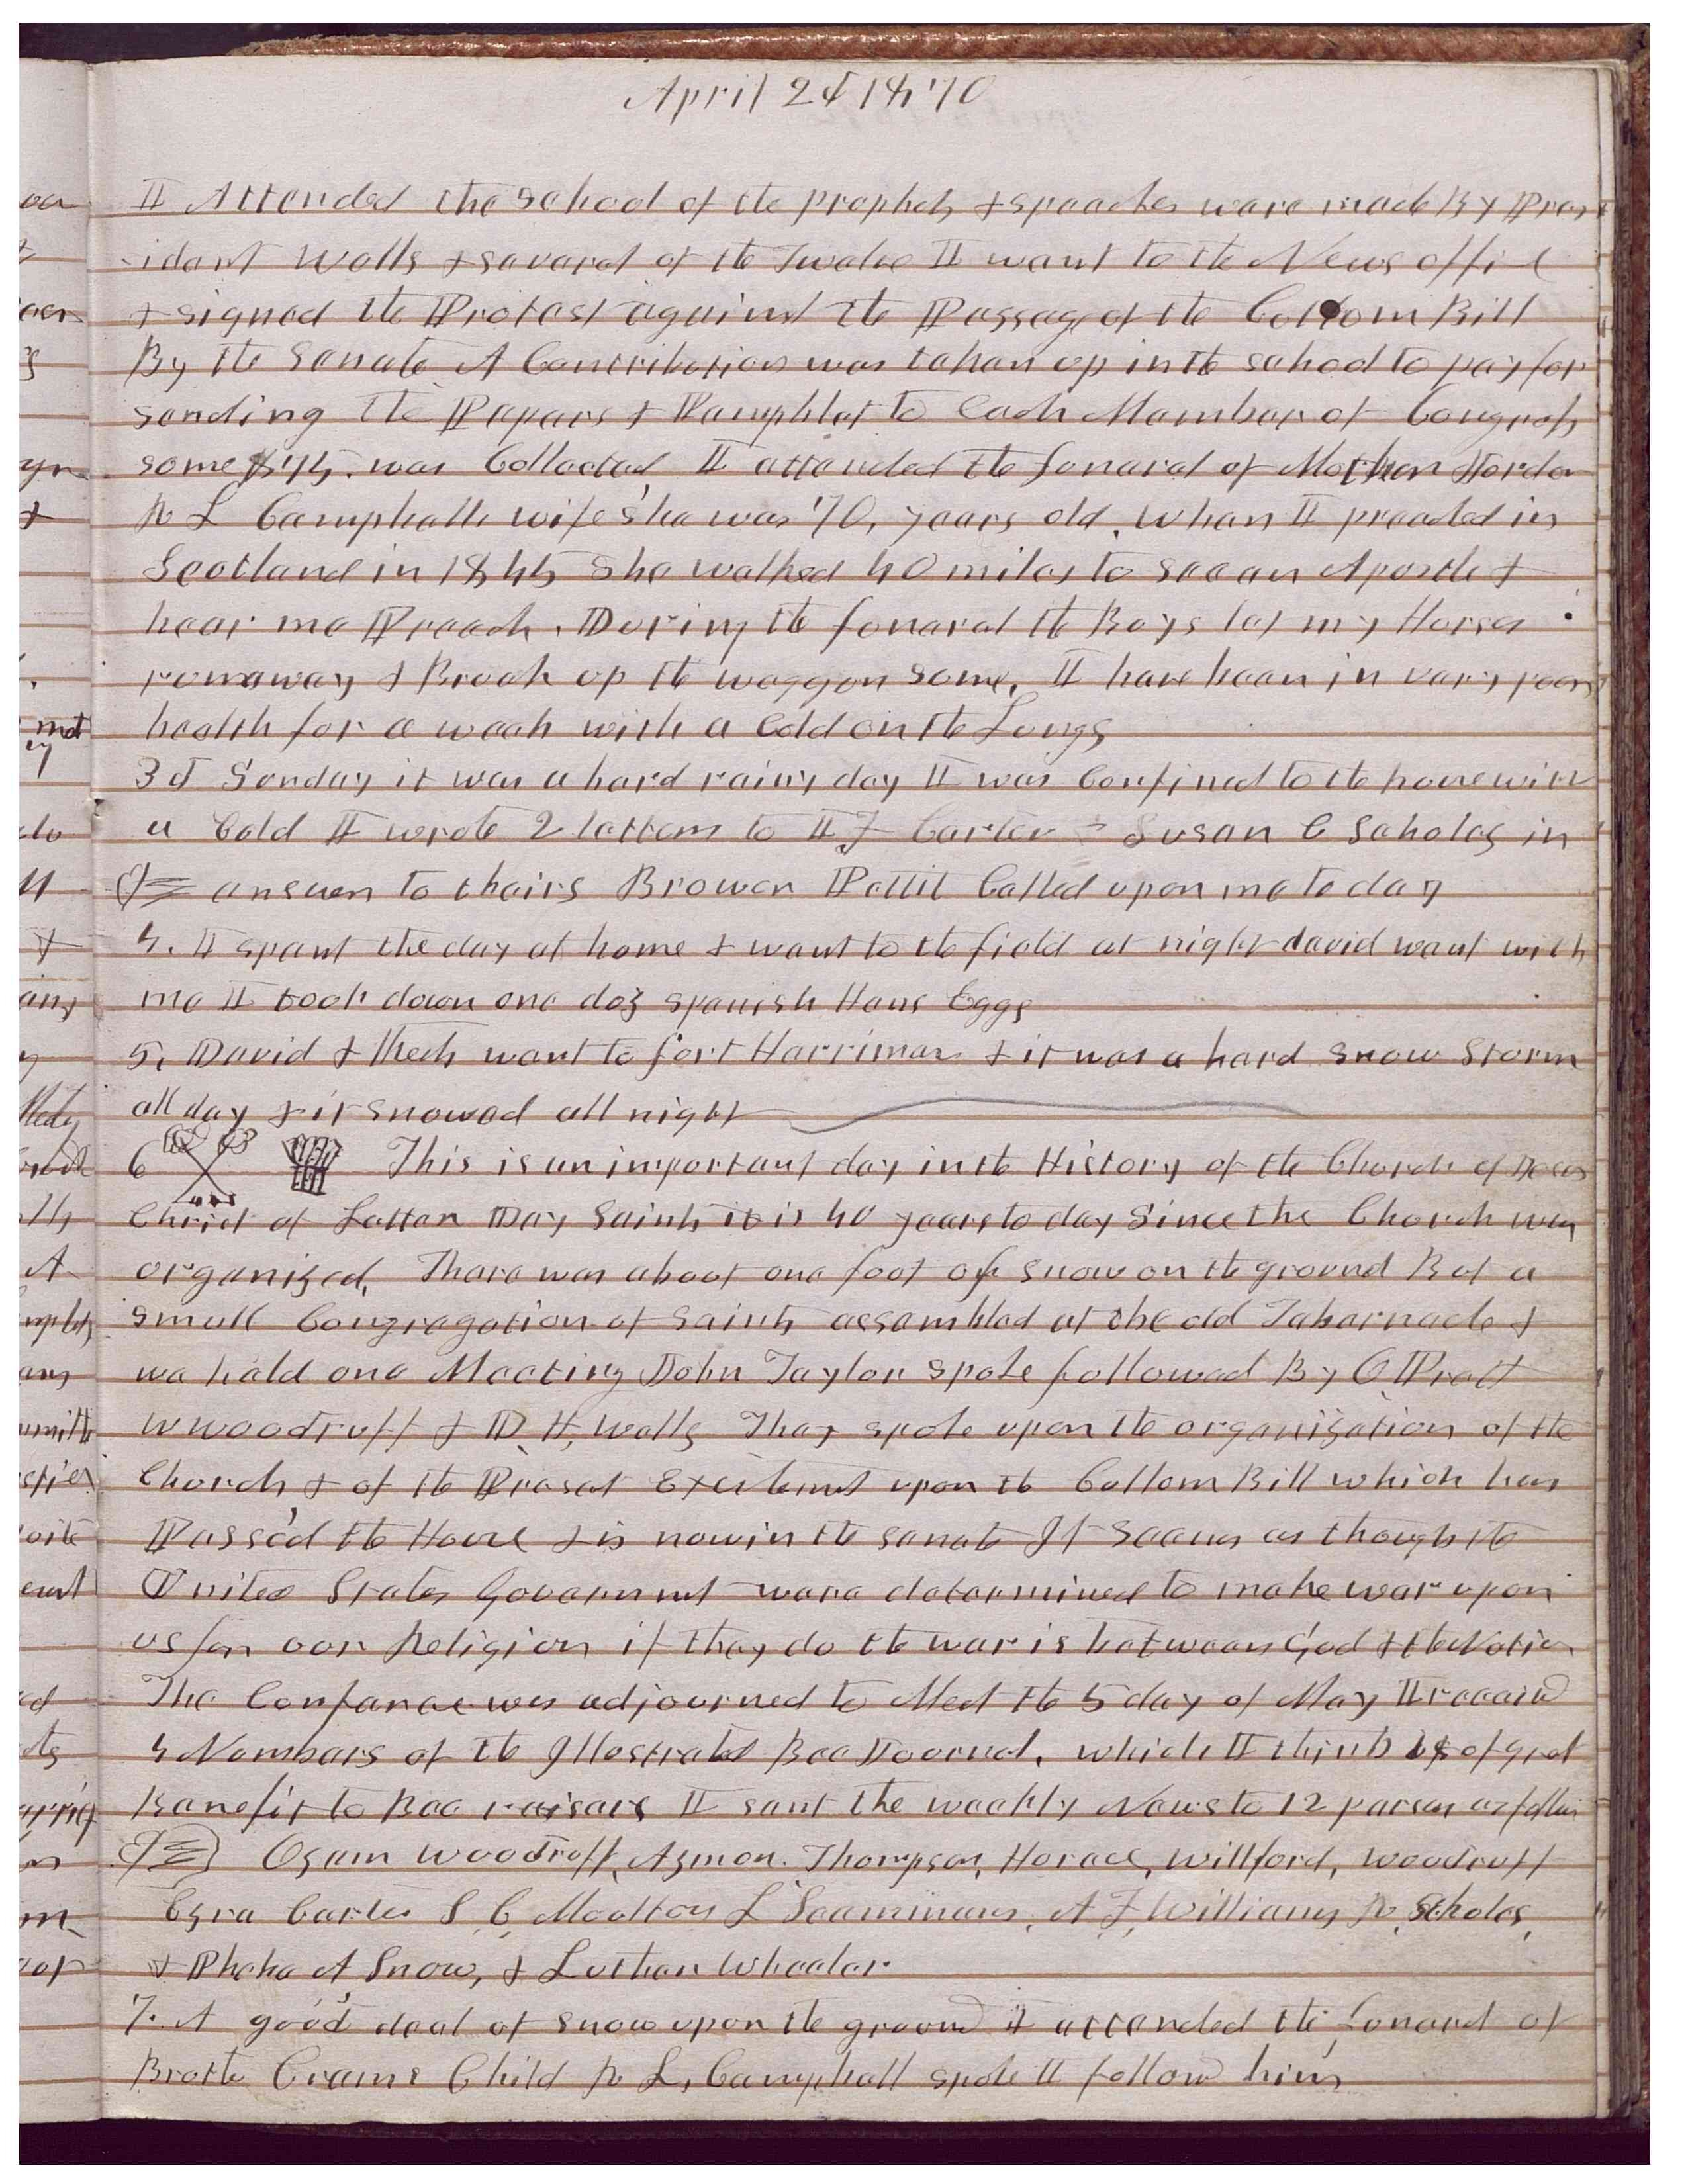 April 2d 1870
I Attended the School of the prophets & speaches ware made By Pres
-idant Wells & several of the Twelve I went to the News office
& signed the Protest against the Passage of the Collom Bill
By the Senate A Contribution was taken up in the school to pay for
sending the Papers & Pamphlet to Each Member of Congress
some $75. was Collected I attended the funeral of Mother
R L Campbells wife she was 70, years old, When I preached in
Scotland in 1845 She walked 40 miles to see an Apostle &
hear me Preach. During the funeral the Boys let my Horses
run away & Broak up the waggon some, I have been in very poor
health for a week with a Cold on the Lungs
3d Sunday it was a hard rainy day I was Confined to the house with
a Cold I wrote 2 letters to I F Carter - Susan C Scholes in
answer to theirs Brower Pettit Called upon me to day
4. I spent the day at home & went to the field at night david went with
me I took down one doz spanish Hens Eggs
5, David & went to fort Harriman & it was a hard snow Storm
all day & it snowed all night
6 This is an important day in the History of the Church of Jesus
Christ of Latter Day Saints it is 40 years to day Since the Church was
organized, There was about one foot of snow on the ground But a
small Congregation of Saints assembled at the old Tabernacle &
we held one Meeting John Taylor spoke followed By O Pratt
W Woodruff & D. H. Wells They spoke upon the organization of the
Church & of the Presat Excitemet upon the Collom Bill which has
Passed the House & is now in the senate It seems as though the
United States Governmet were determined to make war upon
us for our Religion if they do the war is between God & the Nation
The Conference was adjourned to Meet the 5 day of May I receivd
4 Numbers of the Illustrated Bee Journal, which I think is of great
Benefit to Bee raisers I sent the weekly News to 12 person as follows
Ozem Woodruff, Azmon. Thompson, Horace, Willford, Woodruff
Ezra Carter S, C, Moulton L Scammans, A F, Williams R Scholes,
& Phebe A Snow, & Luther Wheeler
7. A good deal of snow upon the ground I attended the funeral of
Brothe Crams Child R L, Campbell spoke I followd him